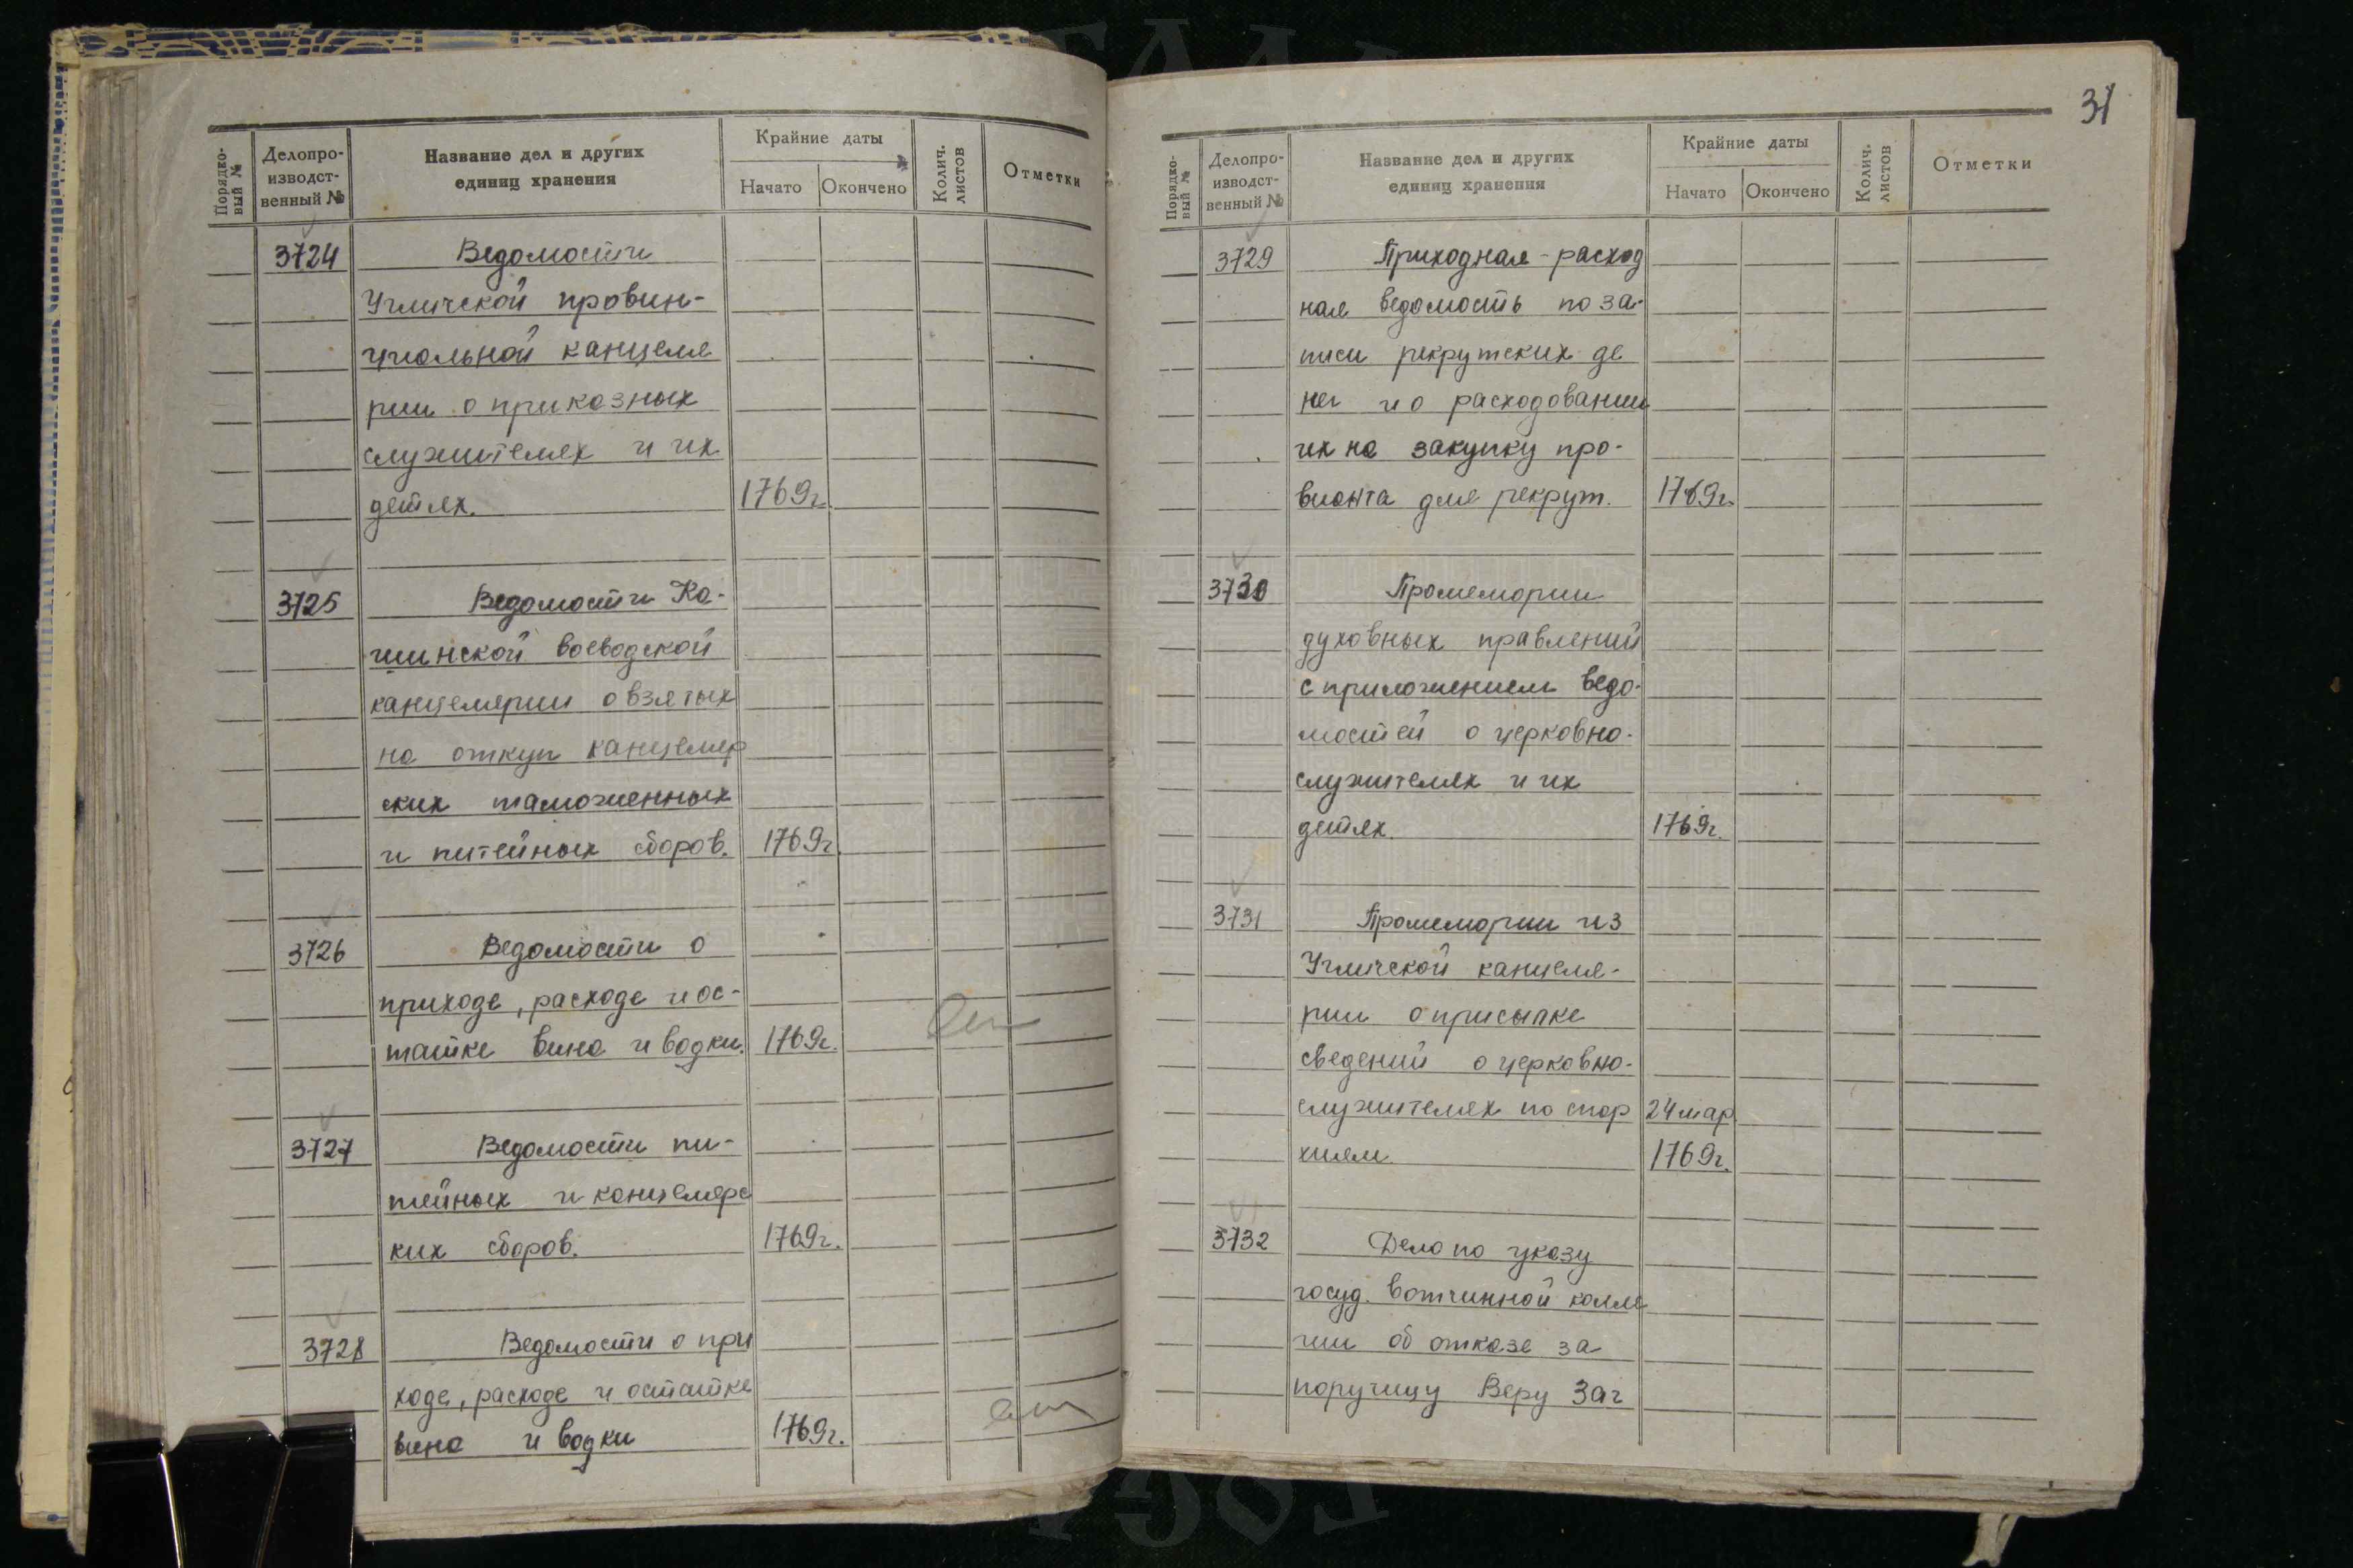 Порядко-
вый №
Делопро-
изводст-
венный №
Название дел и других
единиц хранения
Крайние даты
Начато
Окончено
Колич.
листов
Отметки
3724 Ведомости
Угличской провин-
циальной канцеля
рии о приказных
служителях и их
детях. 1769г.
3725 Ведомости Ка-
шинской воеводской
канцелярии о взятых
на откуп канцеляр
ских таможенных
и питейных сборов. 1769г.
3726 Ведомости о
приходе, расходе и ос-
татке вина и водки. 1769г.
3727 Ведомости пи-
тейных и канцелярс
ких сборов. 1769г.
3728 Ведомости о при
ходе, расходе и остатке
вина и водки 1769г.
31
Порядко-
вый №
Делопро-
изводст-
венный №
Название дел и других
единиц хранения
Крайние даты
Начато
Окончено
Колич.
листов
Отметки
3729 Приходная-расход
ная ведомость по за-
писи рекрутских де
нег и о расходовании
их на закупку про-
вианта для рекрут. 1769г.
3730 Промемории
духовных правлений
с приложением ведо-
мостей о церковно-
служителях и их
детях. 1769г.
3731 Промемории из
Угличской канцеля-
рии о присылке
сведений о церковно-
служителях по епар 24 мар.
хиям. 1769г.
3732 Дело по указу
госуд. вотчинной колле
гии об отказе за
поручицу Веру Заг